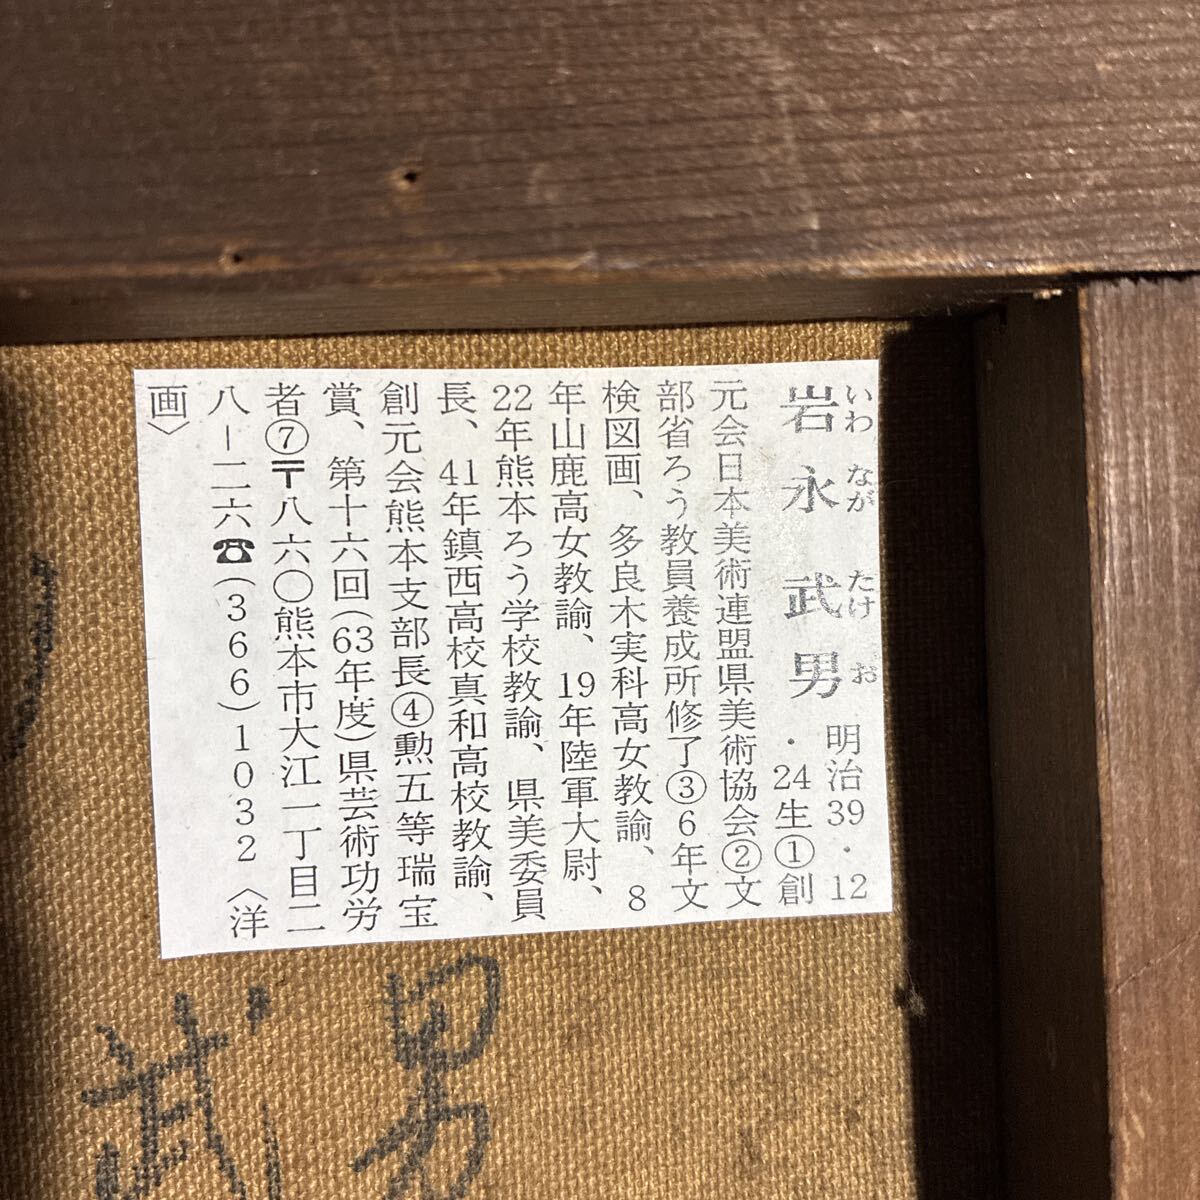 岩永武男
いわ なが たけ お
明治39・12
・24生①創
元会日本美術連盟県美術協会②文
部省ろう教員養成所修了③6年文
検図画、多良木実科高女教諭、8
年山鹿高女教諭、19年陸軍大尉、
22年熊本ろう学校教諭、県美委員
長、41年鎮西高校真和高校教諭、
創元会熊本支部長④勲五等瑞宝
賞、第十六回(63年度)県芸術功労
者⑦〒八六〇熊本市大江一丁目二
八-二六☎(366)1032〈洋
画〉
武男